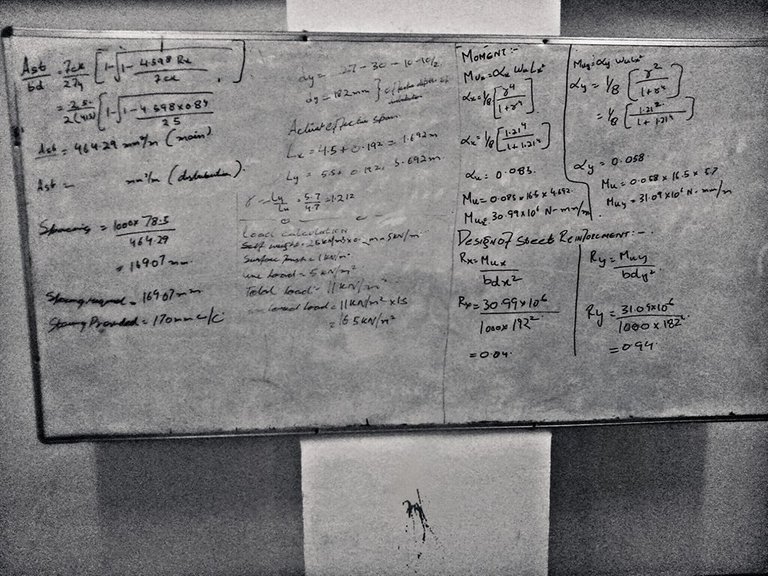 Ast/bd = fck/2fy [1-√1- 4.598 Rx/fck]
= 25/2(415) [1-√1- 4.598×0.84/25]
Ast = 464.29 mm²/m (main)
Ast = mm²/m (distribution).
Spacing = 1000×78.5/464.29
= 169.07 mm.
Spacing required = 169.07 mm
Spacing Provided = 170 mm c/c
dy = 182 mm } effective depth of
distribution
Actual effective span
Lx = 4.5 + 0.192 = 1.692 m
Ly = 5.5 + 0.192, 5.692 m
r = Ly/Lx = 5.7/4.7 = 1.212
Load Calculation
Surface finish = 1 KN/m²
Live Load = 5 KN/m²
Total Load = 11 KN/m²
Load = 11 KN/m² × 1.5
= 16.5 KN/m²
MOMENT:-
Mux = αx Wu Lx²
αx = 1/8 [r⁴/1+r⁴]
αx = 1/8 [1.21⁴/1+1.21⁴]
αx = 0.085.
Mu = 0.085 × 16.5 × 4.692
Mux 30.99×10⁶ N-mm/m
Muy = αy Wu Lx²
αy = 1/8 [r²/1+r⁴]
= 1/8 [1.21²/1+1.21⁴]
αy = 0.058
Mu = 0.058 × 16.5 × 5.7
Muy = 31.09×10⁶ N-mm/m
DESIGN OF Steel REINFORCEMENT:-
Rx = Mux/bdx²
Rx = 30.99×10⁶/1000×192²
= 0.84.
Ry = Muy/bdy²
Ry = 31.09×10⁶/1000×182²
= 0.94.